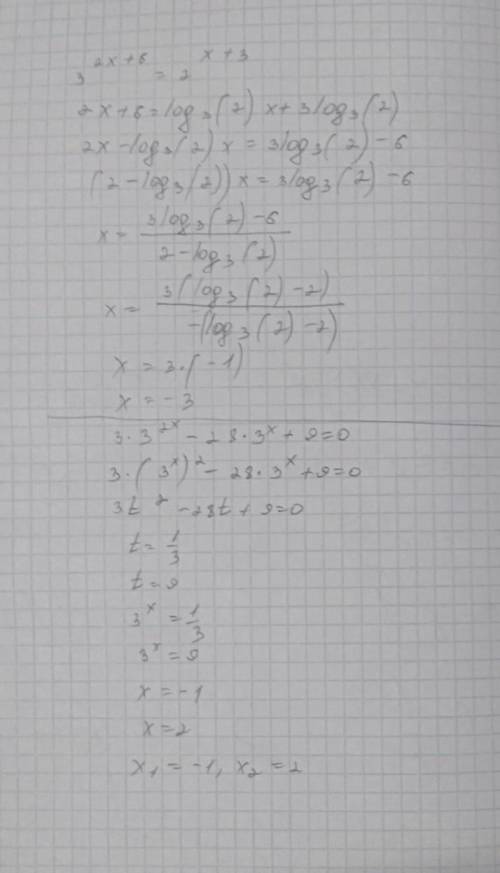 3^(2x+6) = 2^(x+3)
2x+6=log₃(2)x+3log₃(2)
2x-log₃(2)x=3log₃(2)-6
(2-log₃(2))x=3log₃(2)-6
x=(3log₃(2)-6)/(2-log₃(2))
x=3(log₃(2)-2)/-(log₃(2)-2)
x=3·(-1)
x=-3
3·3^(2x)-28·3^x+9=0
3·(3^x)²-28·3^x+9=0
3t²-28t+9=0
t=1/3
t=9
3^x=1/3
3^x=9
x=-1
x=2
x₁=-1, x₂=2